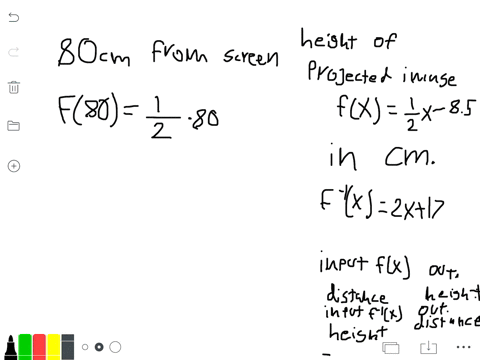 80cm from screen
F(80) = 1/2 · 80
height of
Projected image
f(x) = 1/2 x - 8.5
in cm.
F⁻¹(x) = 2x + 17
input f(x) out.
distance height
input f⁻¹(x) out.
height distance